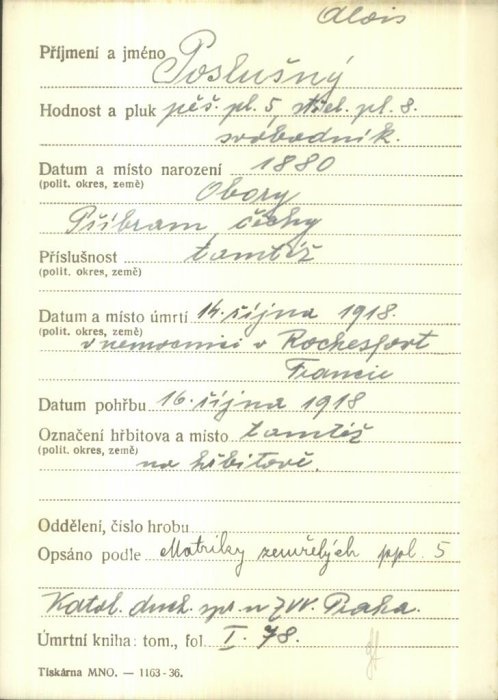 Alois
Příjmení a jméno Poslušný
Hodnost a pluk pěš. pl. 5, střel. pl. 8.
svobodník.
Datum a místo narození 1880
(polit. okres, země) Obory
Příbram, čechy
Příslušnost tamtéž
(polit. okres, země)
Datum a místo úmrtí 14. října 1918.
(polit. okres, země) v nemocnici v Rochesfort
Francie
Datum pohřbu 16. října 1918
Označení hřbitova a místo tamtéž
(polit. okres, země) na hřbitově.
Oddělení, číslo hrobu
Opsáno podle Matriky zemřelých ppl. 5
Katol. duch. spr. u ZVV. Praha.
Úmrtní kniha: tom., fol. I. 78.
Tiskárna MNO. — 1163-36.